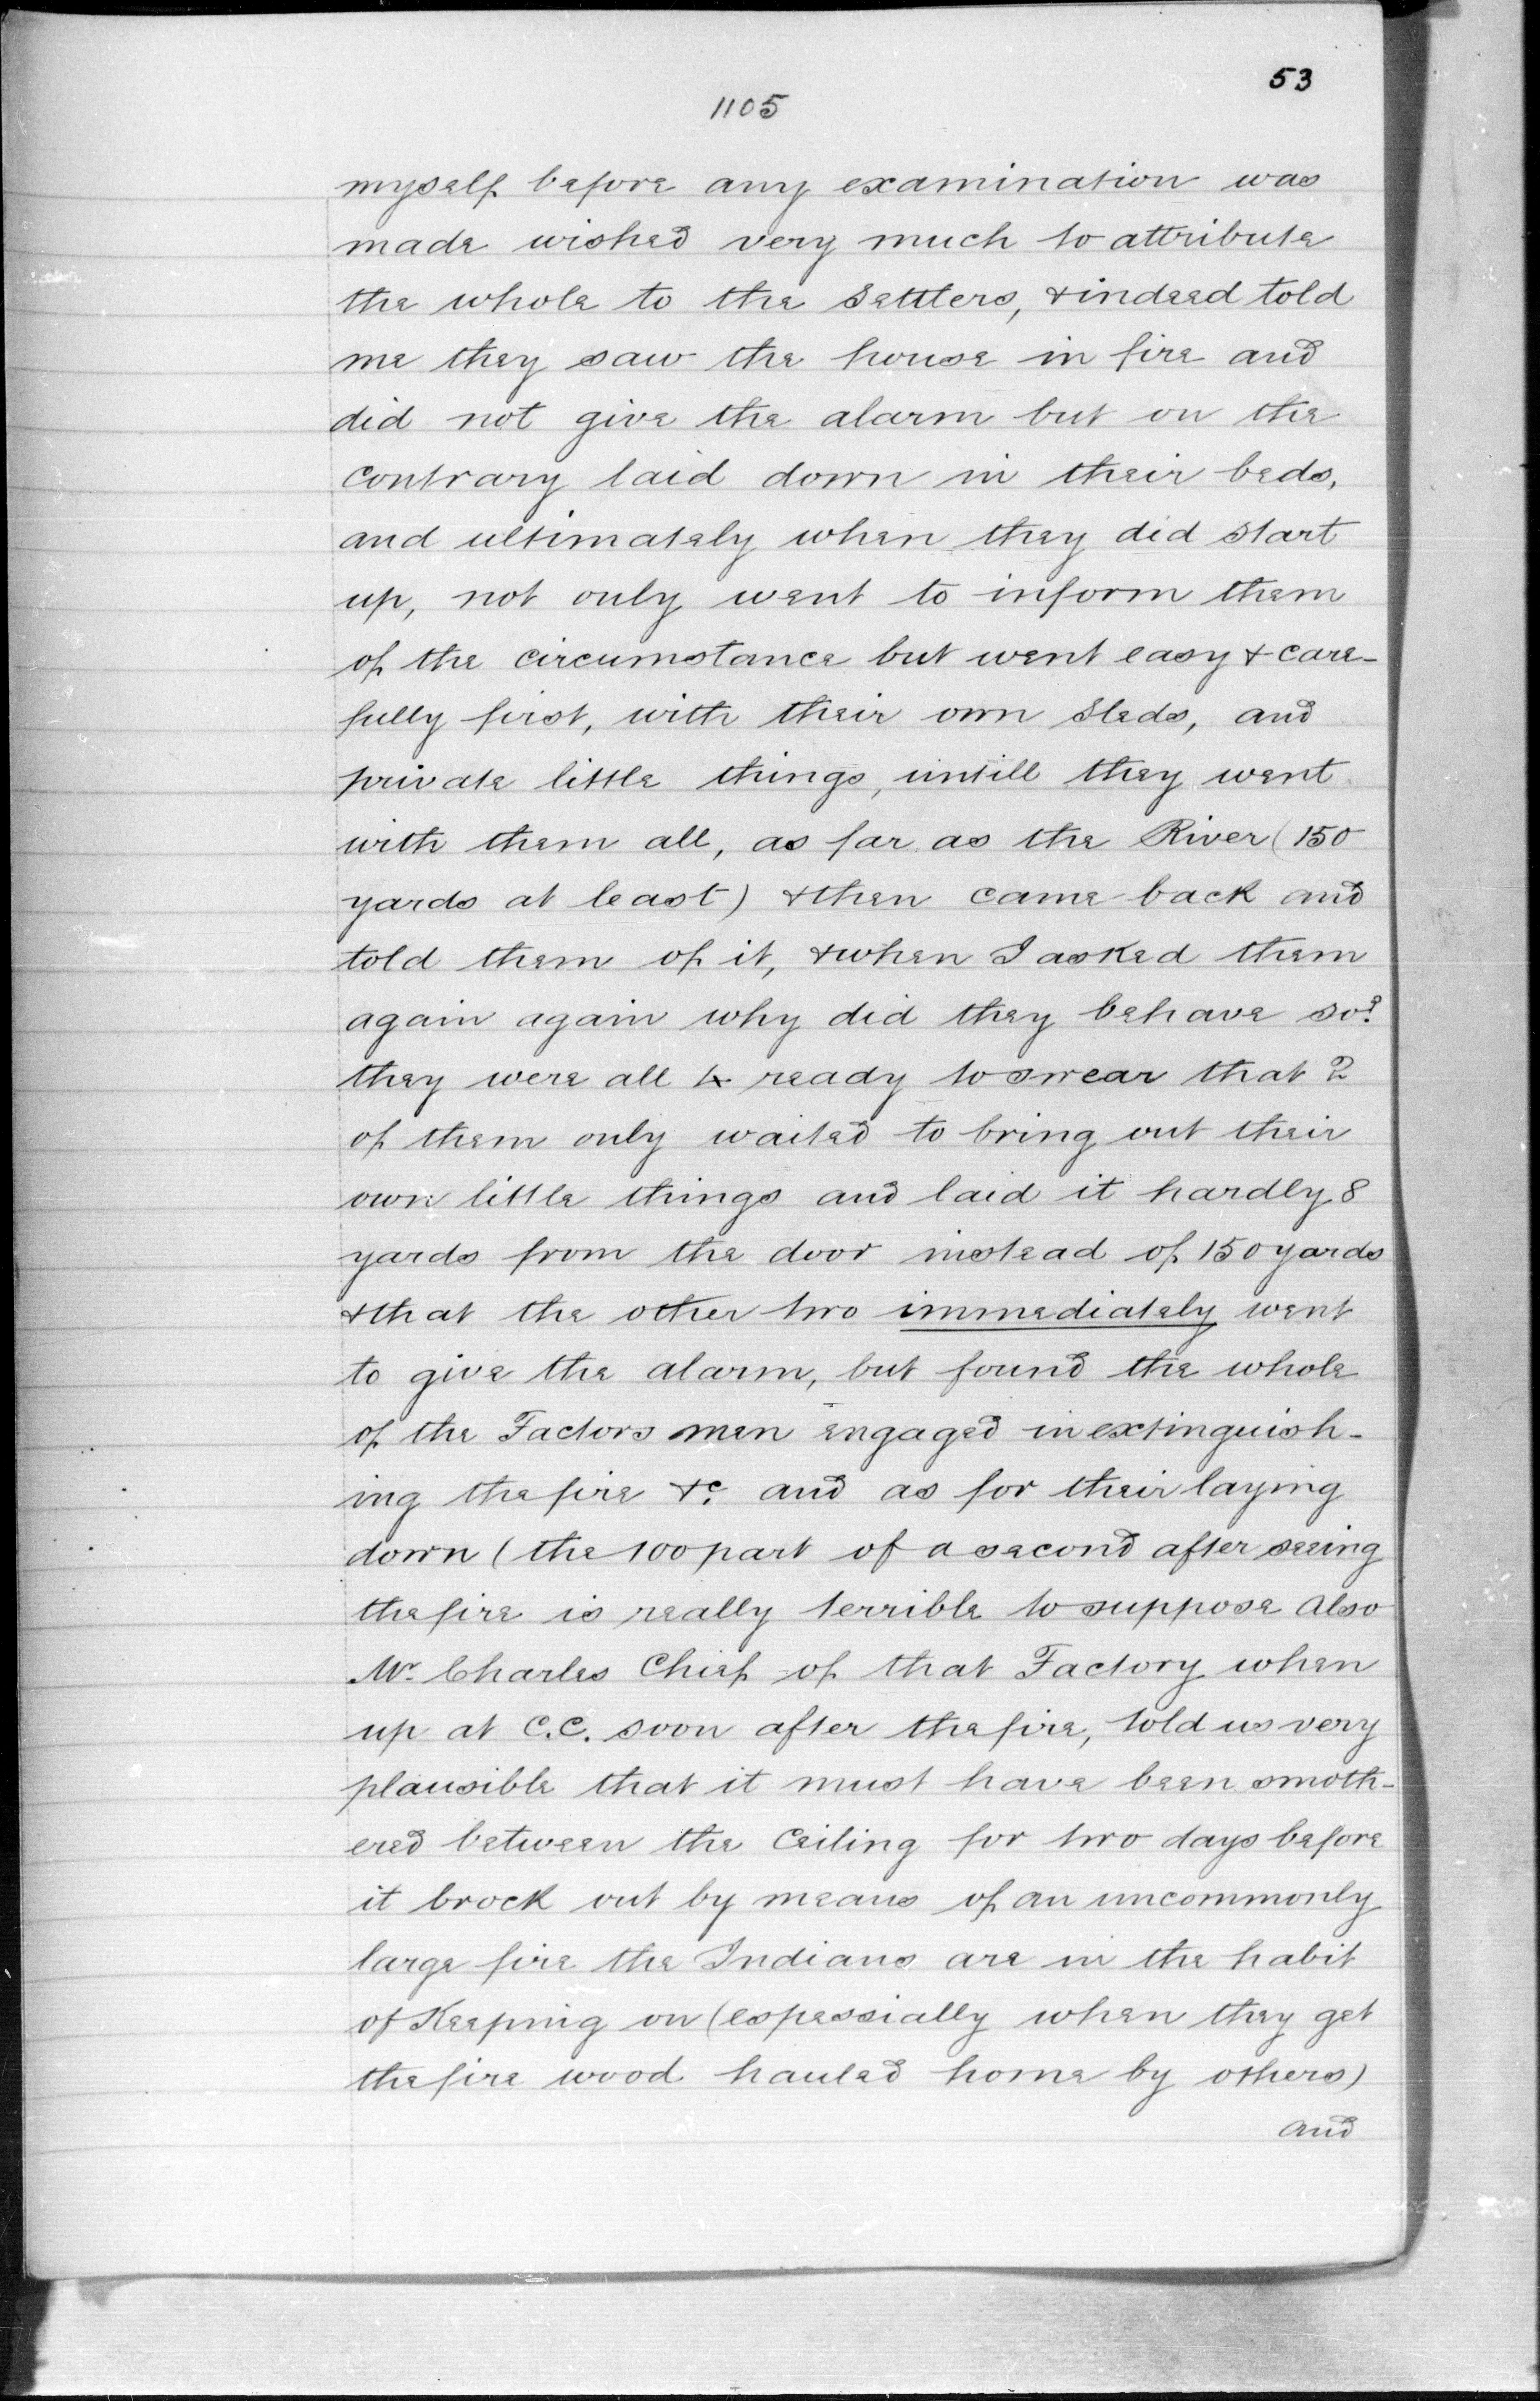 53
1105
myself before any examination was
made wished very much to attribute
the whole to the Settlers, & indeed told
me they saw the house in fire and
did not give the alarm but on the
contrary laid down in their beds,
and ultimately when they did start
up, not only went to inform them
of the circumstance but went easy & care-
fully first, with their own Sleds, and
private little things, untill they went
with them all, as far as the River (150
yards at least) & then came back and
told them of it, & when I asked them
again again why did they behave so?
they were all ready to swear that 2
of them only waited to bring out their
own little things and laid it hardly 8
yards from the door instead of 150 yards
& that the other two immediately went
to give the alarm, but found the whole
of the Factors men engaged in extinguish-
ing the fire &c. and as for their laying
down (the 100 part of a second after seeing
the fire is really terrible to suppose Also
Mr. Charles Chief of that Factory when
up at C.C. soon after the fire, told us very
plausible that it must have been smoth-
ered between the Ceiling for two days before
it brock out by means of an uncommonly
large fire the Indians are in the habit
of Keeping on (espessially when they get
the fire wood hauled home by others)
and